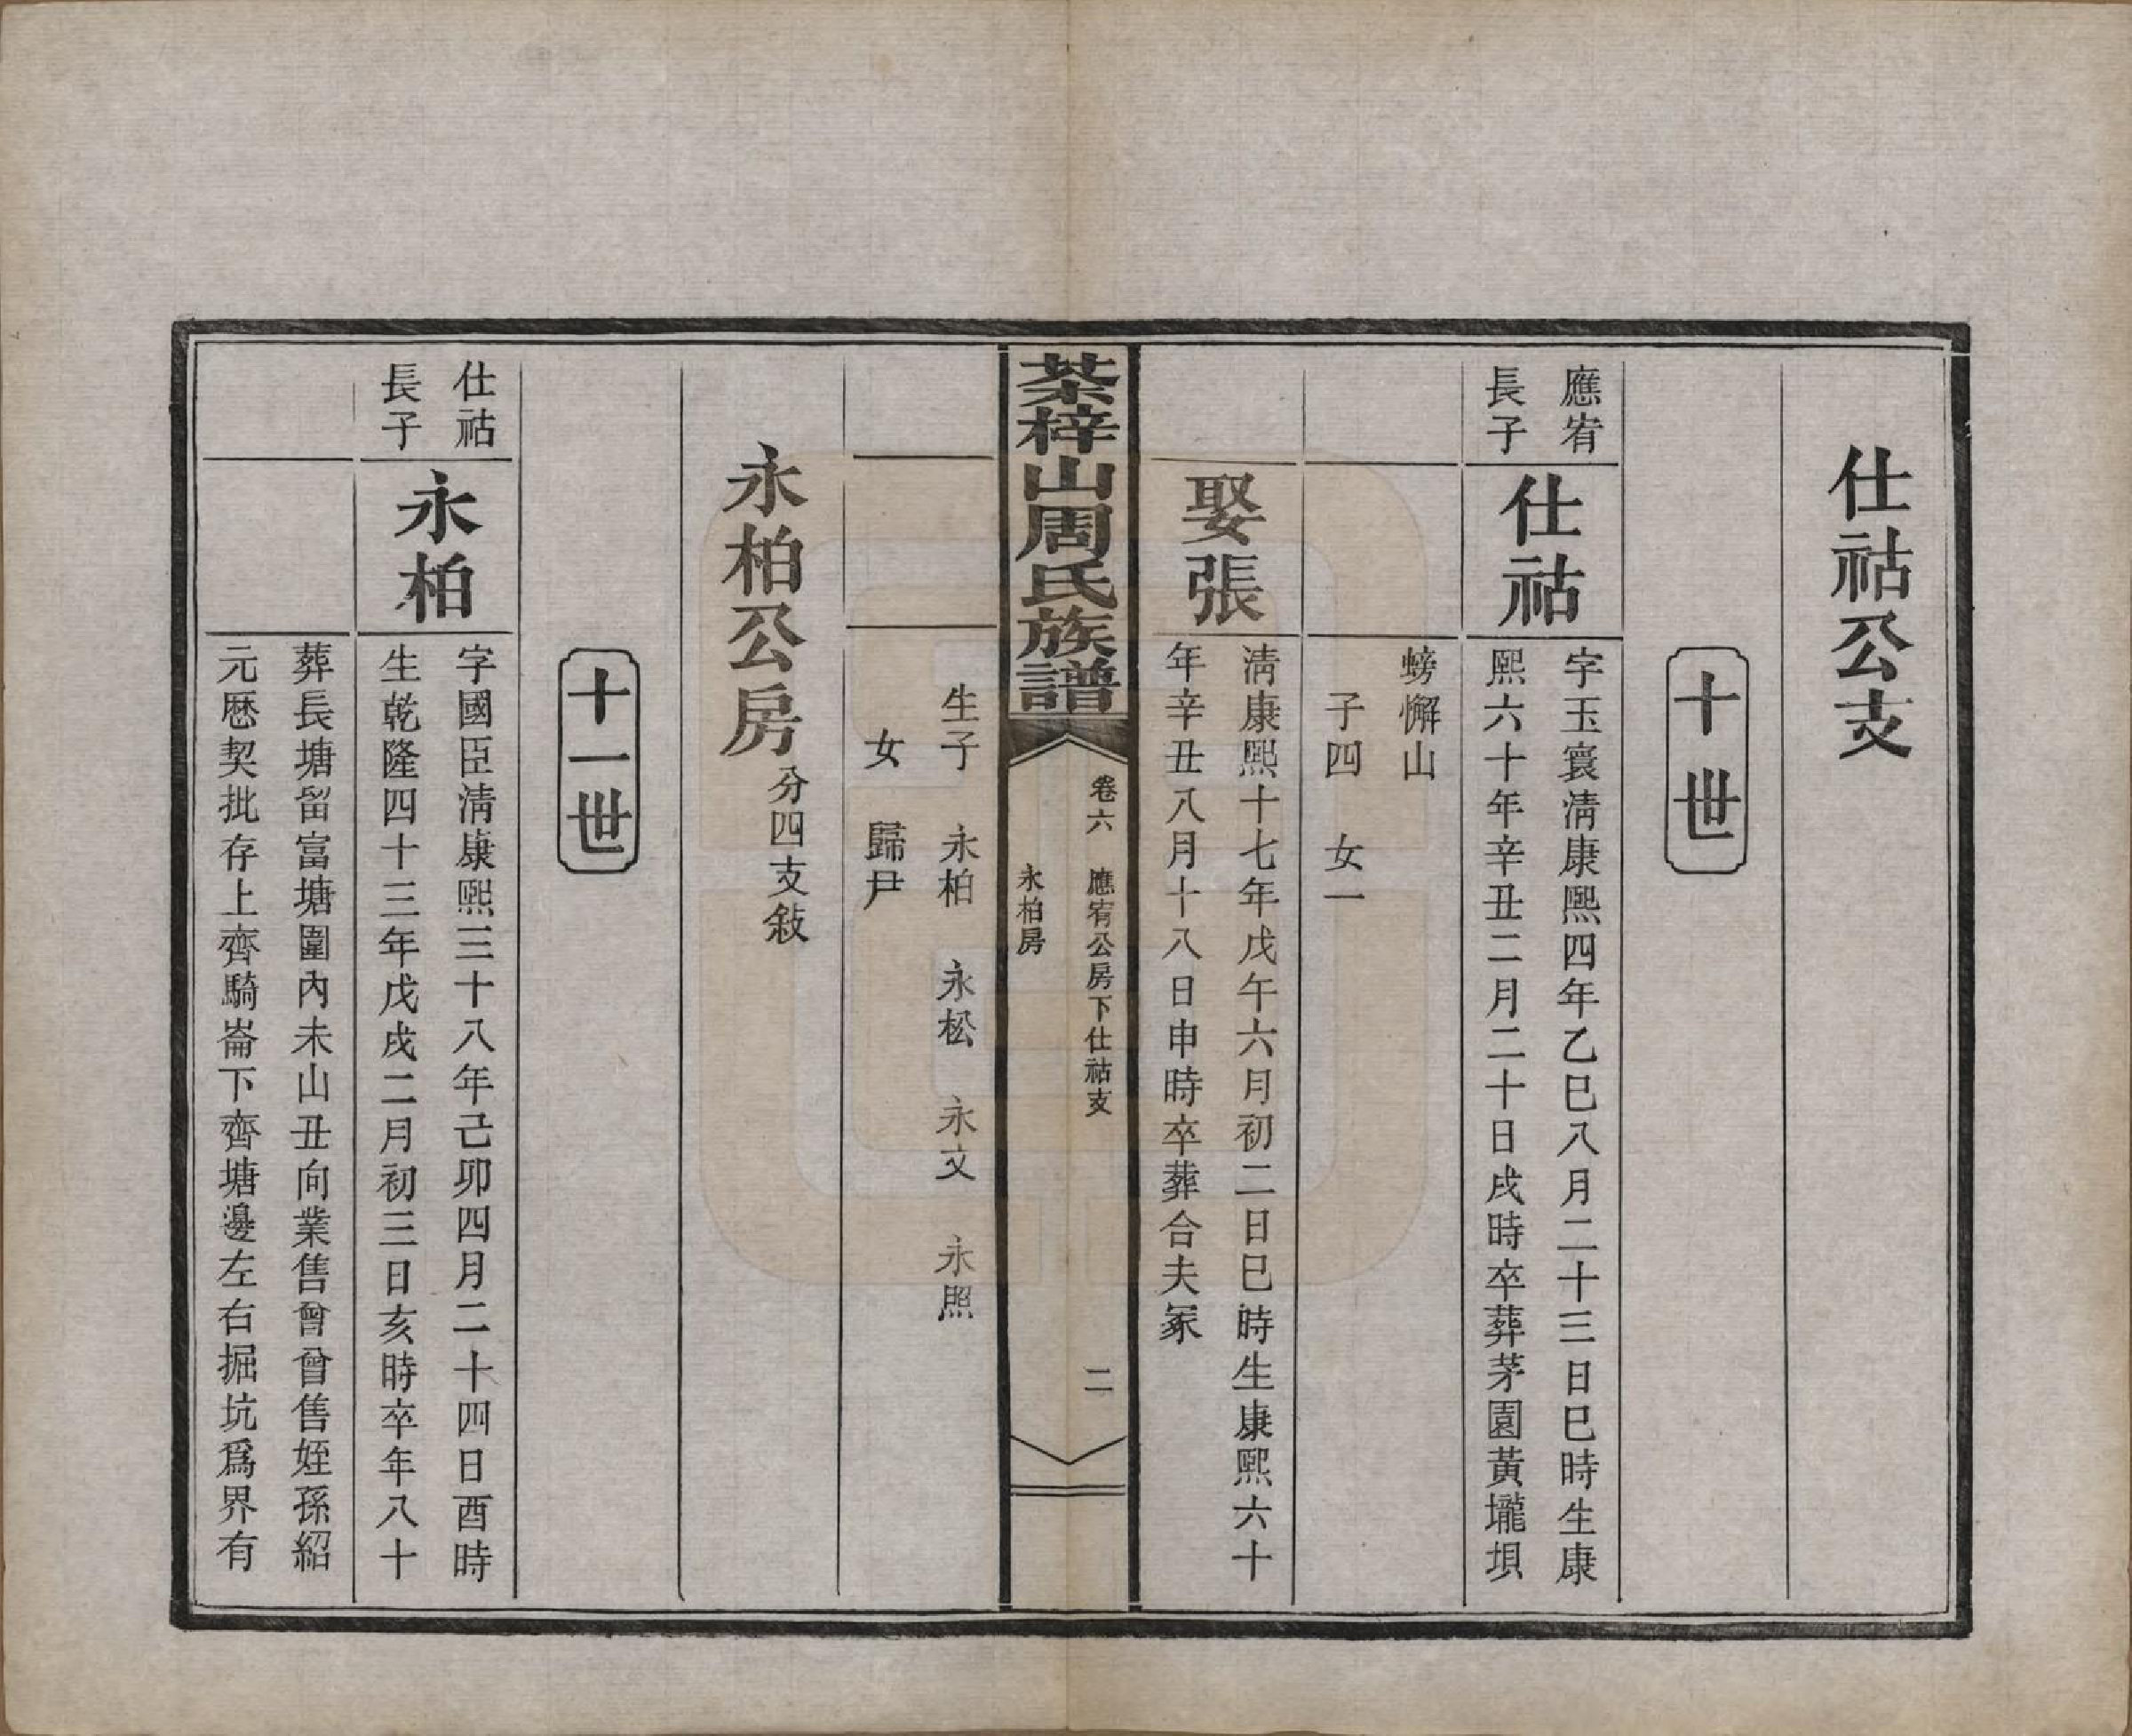 仕祜公支
十世
應宥
長子
仕祜
字玉寰淸康熙四年乙巳八月二十三日巳時生康
熙六十年辛丑二月二十日戌時卒葬茅園黃壠垻
螃懈山
子四　女一
娶張
淸康熙十七年戊午六月初二日巳時生康熙六十
年辛丑八月十八日申時卒葬合夫冢
茶梓山周氏族譜
卷六　應宥公房下仕祜支
永柏房
二
生子　永柏　永松　永文　永照
女　歸尹
永柏公房分四支敍
十一世
仕祜
長子
永柏
字國臣淸康熙三十八年己卯四月二十四日酉時
生乾隆四十三年戊戌二月初三日亥時卒年八十
葬長塘留富塘圍內未山丑向業售曾曾售姪孫紹
元慿契批存上齊騎崙下齊塘邊左右掘坑爲界有